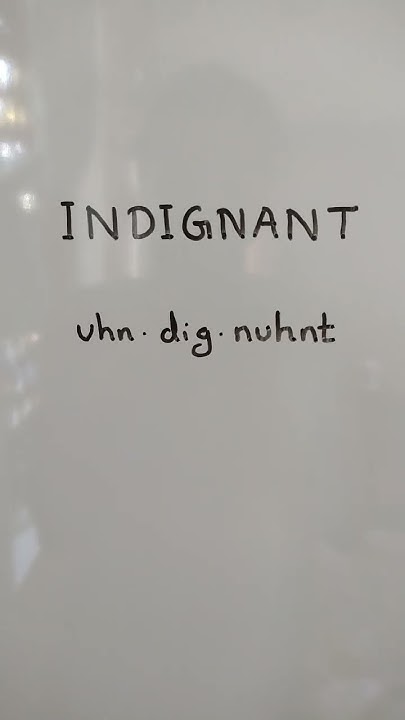 INDIGNANT
uhn · dig · nuhnt